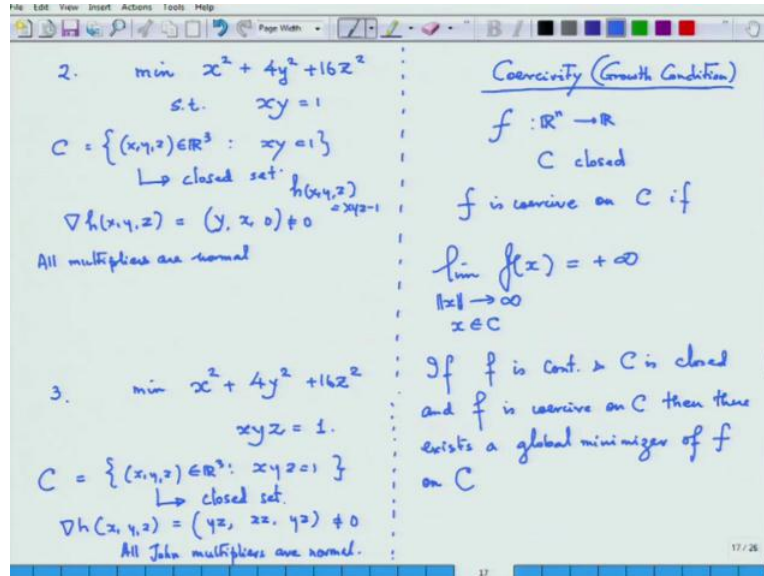 File Edit View Insert Actions Tools Help
Page Width
B I
2. min x² + 4y² + 16z²
s.t. xy = 1
C = {(x,y,z) ∈ ℝ³ : xy = 1}
↳ closed set.
h(x,y,z) = xyz-1
∇h(x,y,z) = (y, x, 0) ≠ 0
All multipliers are normal
3. min x² + 4y² + 16z²
xyz = 1.
C = {(x,y,z) ∈ ℝ³ : xyz = 1}
↳ closed set.
∇h(x,y,z) = (yz, xz, yz) ≠ 0
All John multipliers are normal.
Coercivity (Growth Condition)
f : ℝⁿ → ℝ
C closed
f is coercive on C if
lim f(x) = +∞
‖x‖ → ∞
x ∈ C
If f is cont. & C is closed
and f is coercive on C then there
exists a global minimizer of f
on C
17 / 26
17